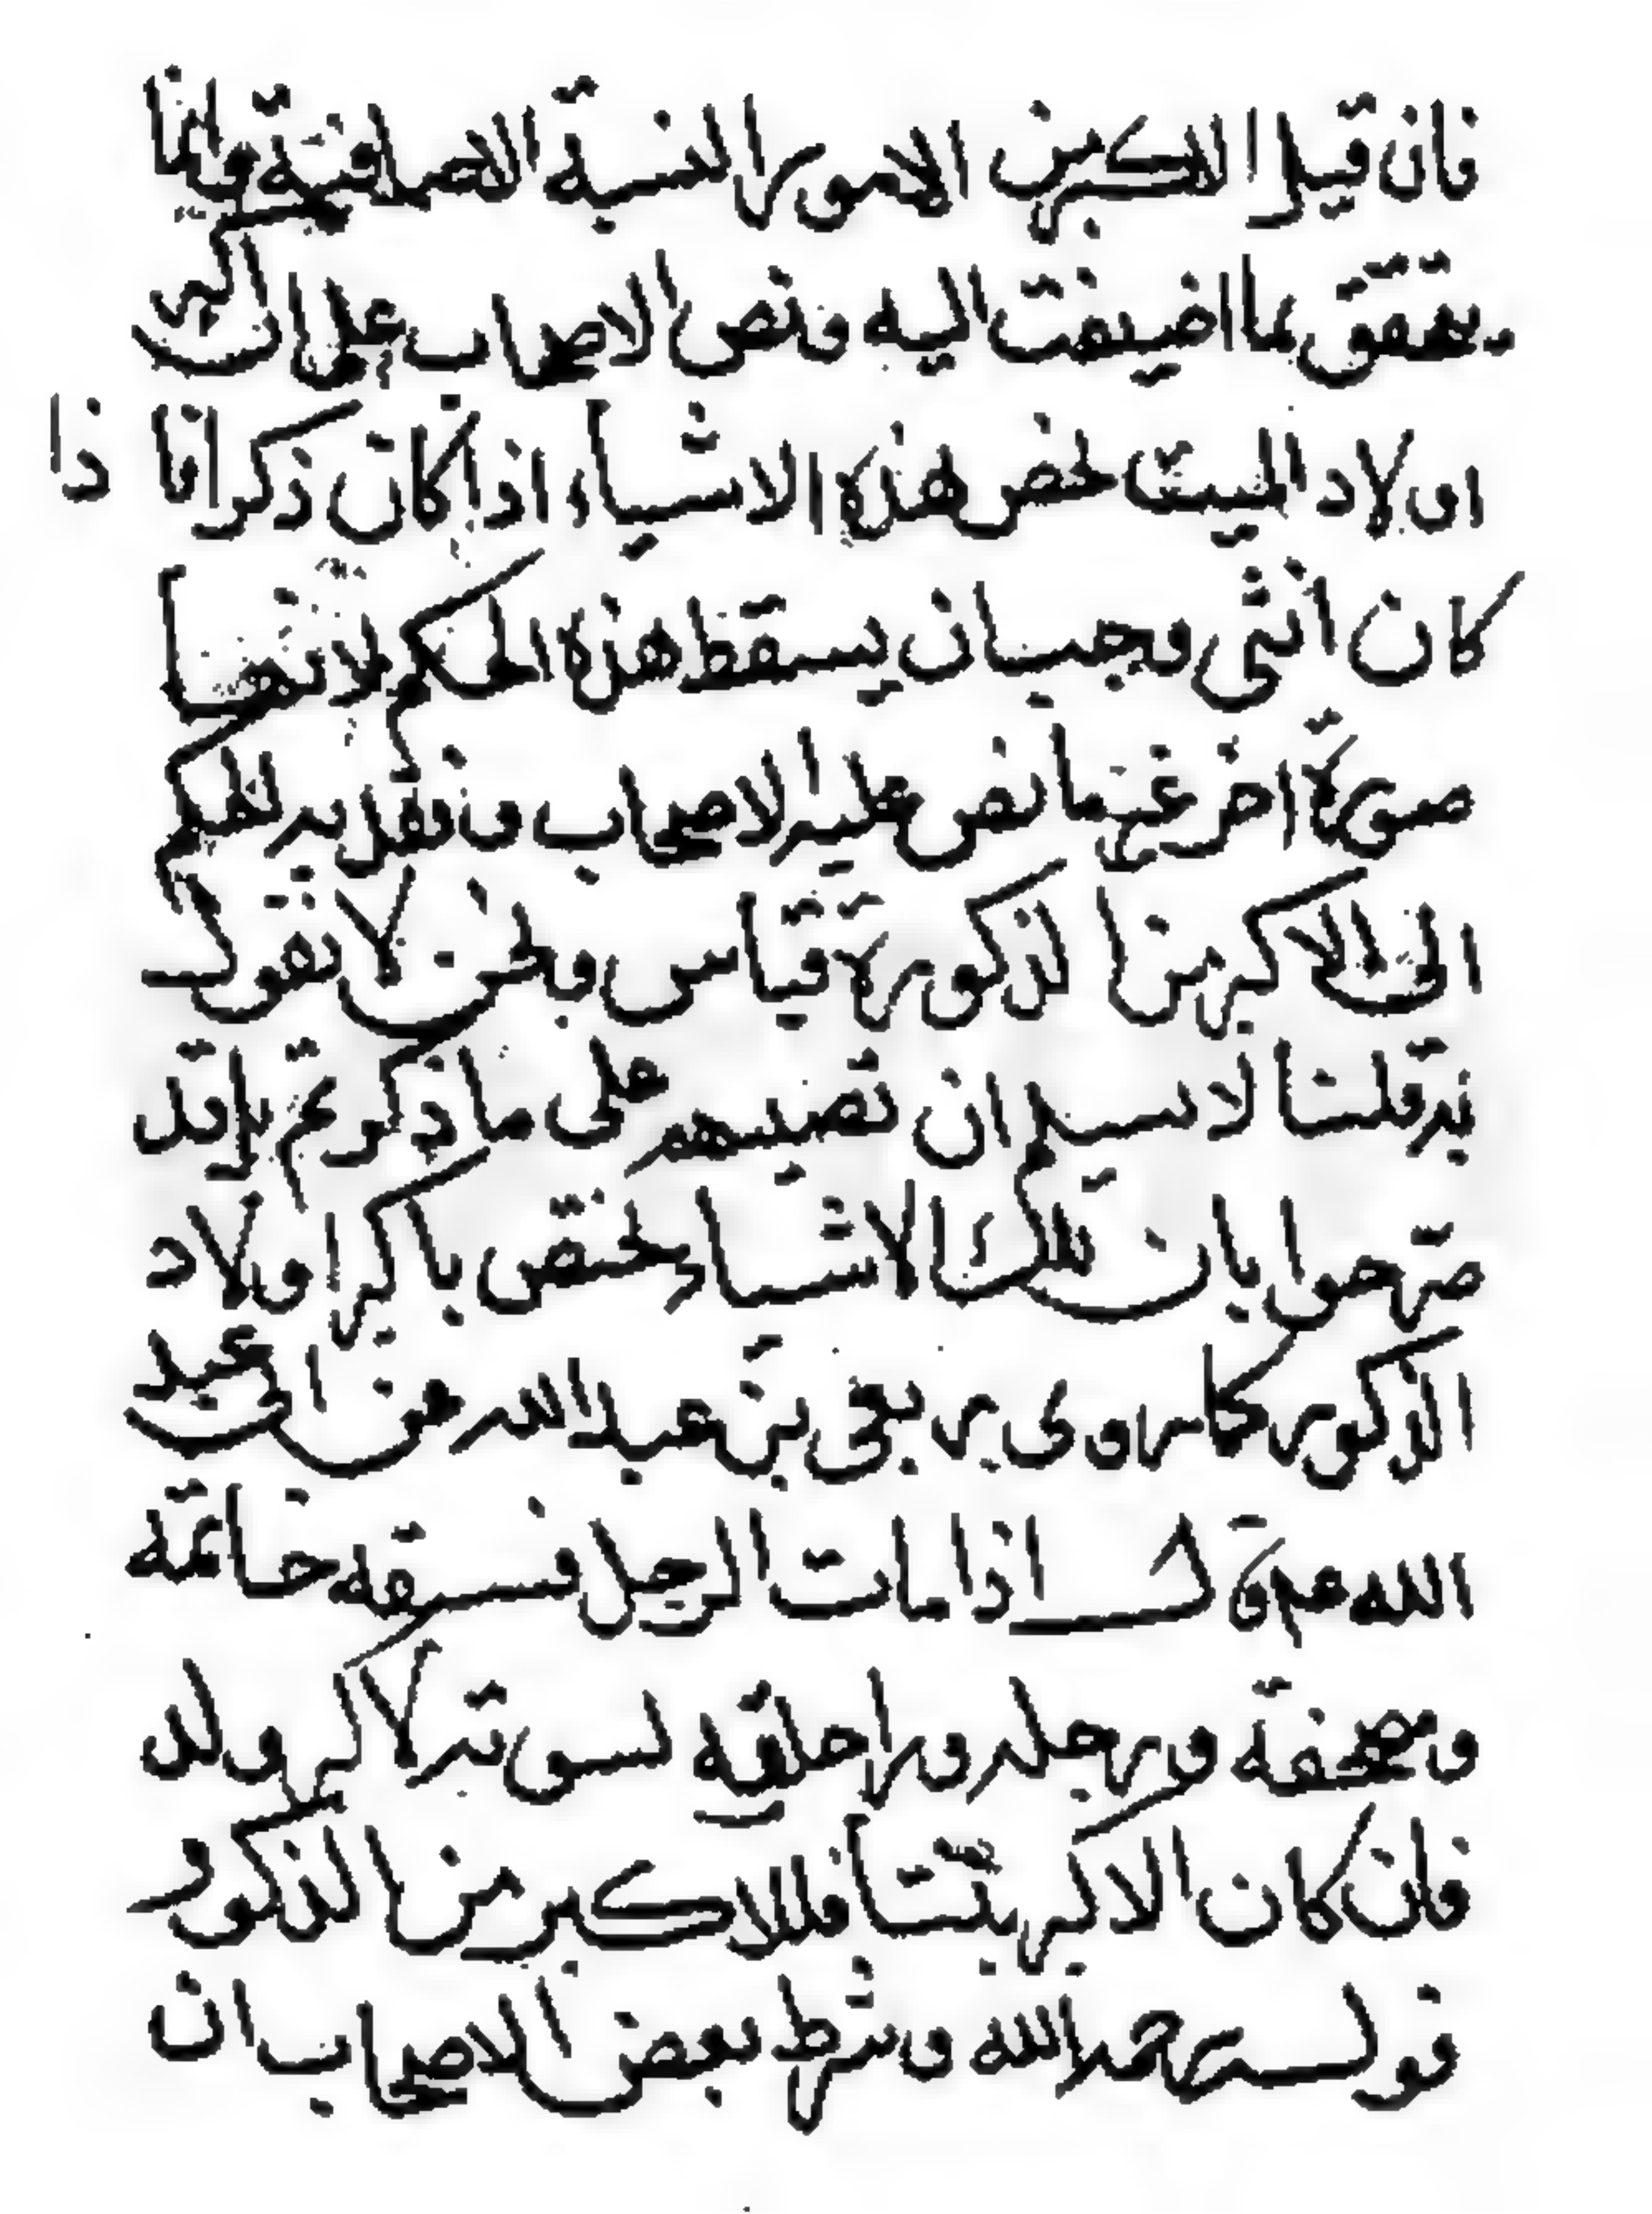 فان قيل الاكبر من الامور النسبة الاضافية وانما
يتحقق بما اضيفت اليه ونص الاصحاب على اكبر
اولاد الميت لخص هذه الاشياء اذا كان ذكرا فاذا
كان انثى وجب ان يسقط هذه الحكم لانها
صورة اخر غير ما نص عليه الاصحاب وتقدير لحكم
الى الاكبر من الذكورة قياس ونحن لا نقول
به قلنا لا نسلم ان نصبهم على ما ذكرتم بل قد
صرحوا بان تلك الاشياء يختص باكبر اولاد
الذكور كما روى ربعى بن عبد الله عن ابى عبد
الله ع م قال اذا مات الرجل فسيفه خاتمه
ومصحفه ورحله وراحلته كسوته لاكبر ولده
فان كان الاكبر بنتا فللاكبر من الذكور
قوله رحمه الله وشرط بعض الاصحاب ان